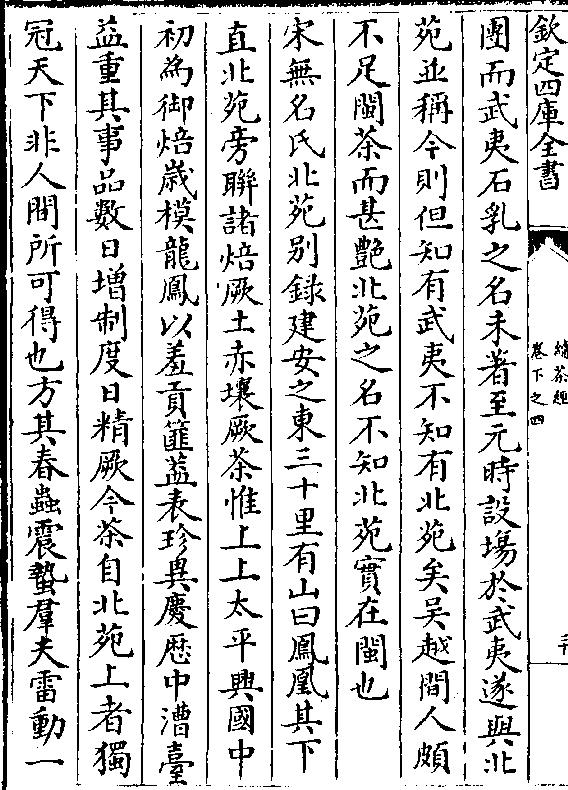 欽定四庫全書
續茶經
卷下之四
二十
團而武夷石乳之名未著至元時設場於武夷遂與北
苑並稱今則但知有武夷不知有北苑矣吳越間人頗
不足閩茶而甚艷北苑之名不知北苑實在閩也
宋無名氏北苑別錄建安之東三十里有山曰鳳凰其下
直北苑旁聯諸焙厥土赤壤厥茶惟上上太平興國中
初為御焙歲模龍鳳以羞貢篚益表珍異慶歷中漕臺
益重其事品數日增制度日精厥今茶自北苑上者獨
冠天下非人間所可得也方其春蟲震蟄羣夫雷動一